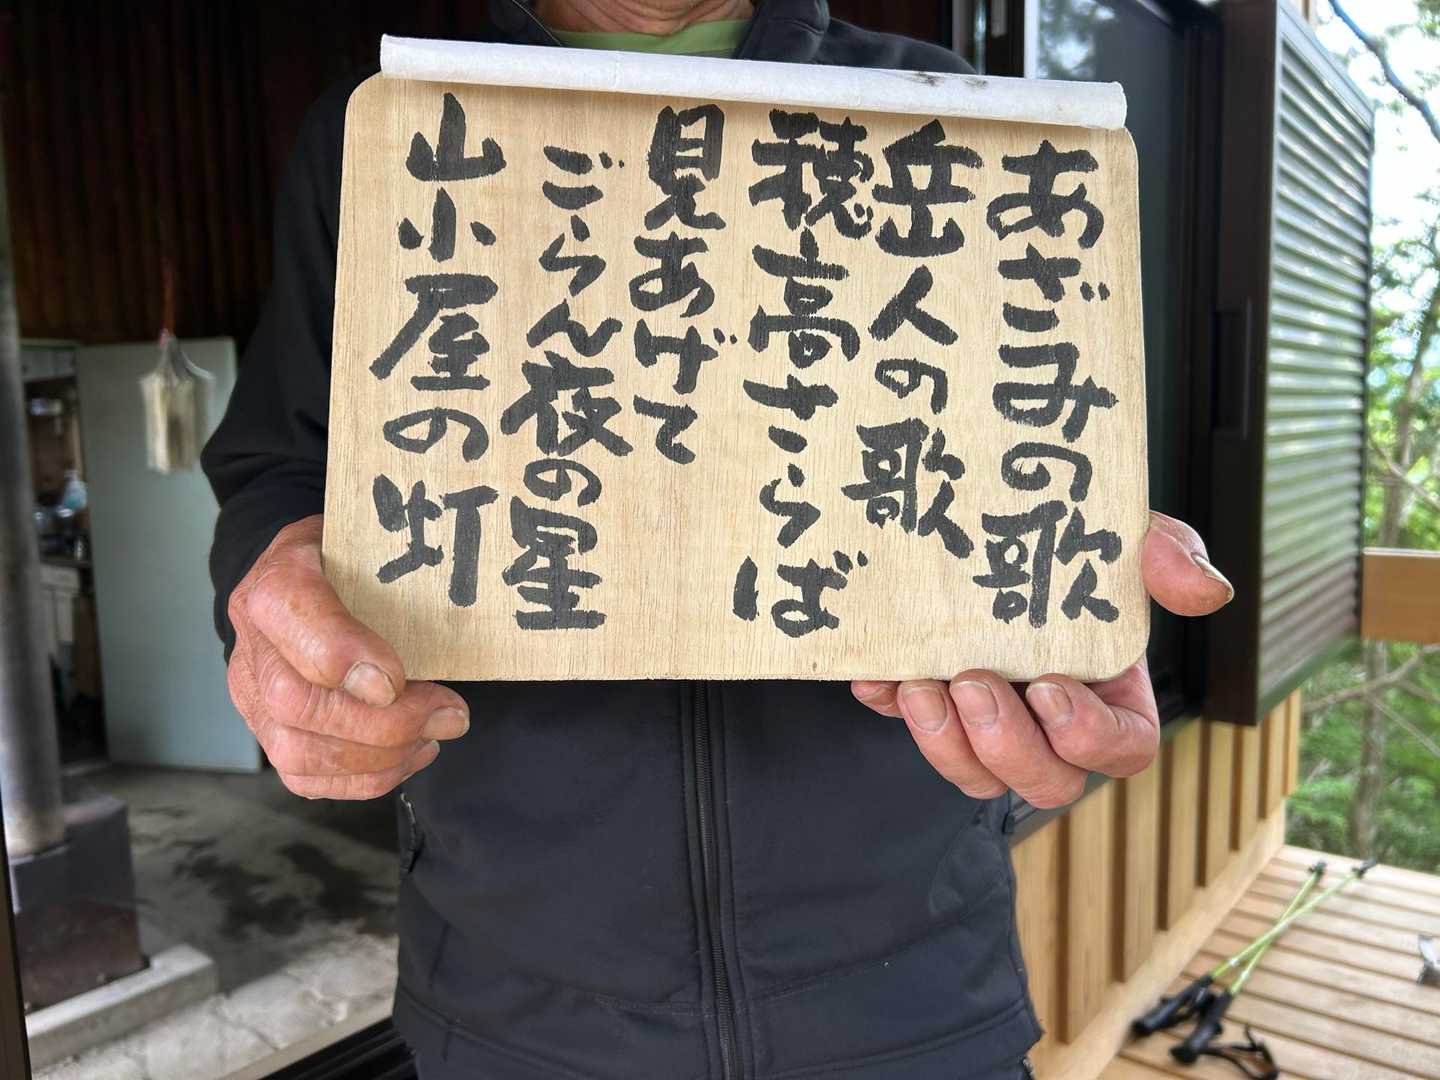 あざみの歌
岳人の歌
穂高さらば
見あげて
ごらん夜の星
山小屋の灯